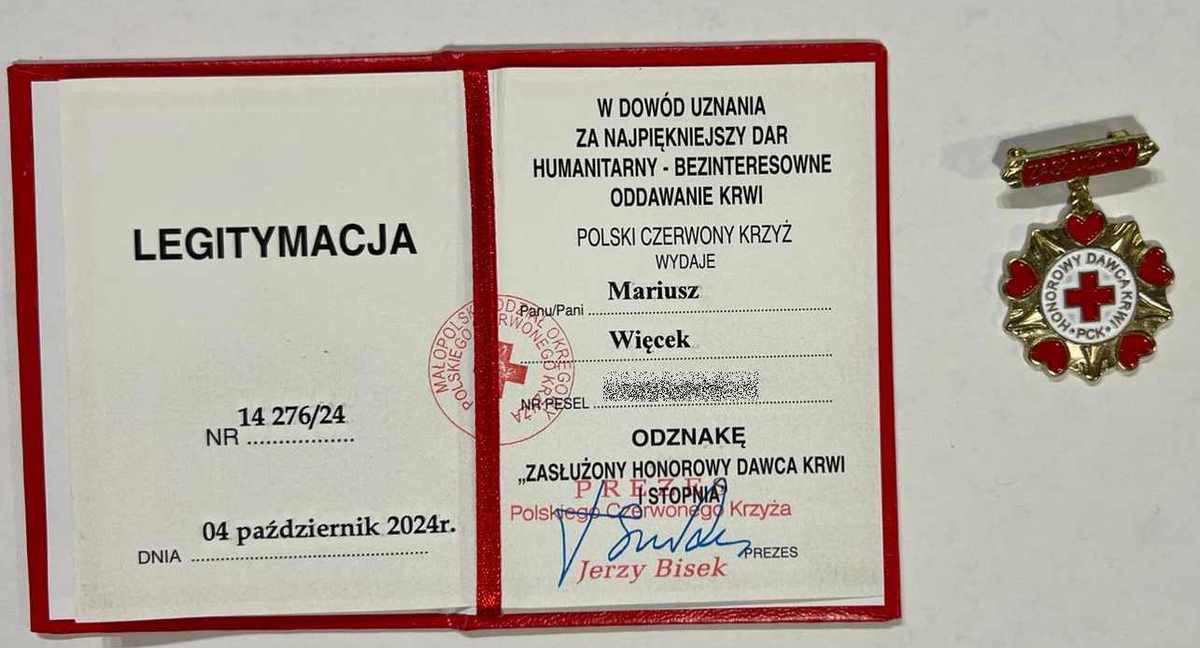 LEGITYMACJA
NR 14 276/24
DNIA 04 październik 2024r.
W DOWÓD UZNANIA
ZA NAJPIĘKNIEJSZY DAR
HUMANITARNY - BEZINTERESOWNE
ODDAWANIE KRWI
POLSKI CZERWONY KRZYŻ
WYDAJE
Panu/Pani Mariusz
Więcek
NR PESEL
ODZNAKĘ
„ZASŁUŻONY HONOROWY DAWCA KRWI
I STOPNIA
PREZES
Polskiego Czerwonego Krzyża
PREZES
Jerzy Bisek
MAŁOPOLSKI ODDZIAŁ OKRĘGOWY
POLSKIEGO CZERWONEGO KRZYŻA
ZASŁUŻONY
HONOROWY DAWCA KRWI
PCK